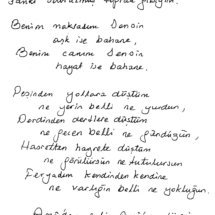 Benim maksadım Sensin
aşk ise bahane,
Benim canım Sensin
hayat ise bahane.
Peşinden yollara düştüm
ne yerin belli ne yurdun,
Derdinden dertlere düştüm
ne gecen belli ne gündüzün,
Hasretten hayrete düştüm
ne görülürsün ne tutulursun
Feryadım kendinden kendine
ne varlığın belli ne yokluğun.